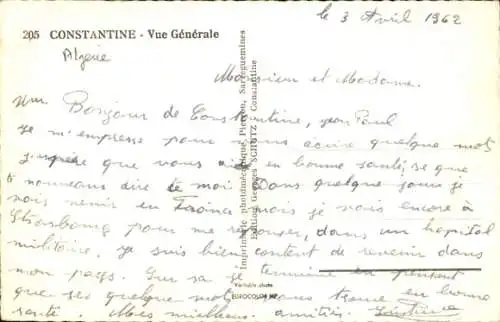 205 CONSTANTINE - Vue Générale
le 3 Avril 1962
Algérie
Monsieur et Madame.
Un Bonjour de Constantine, jean Paul
je m'empresse pour vous écrire quelque mot
j'espère que vous en bonne santé, se que
nouveaus dire te moi Dans quelque jour je
vais venir en France mais je vais encore à
Strasbourg pour me reposer, dans un hopital
militaire, je suis bien content de revenir dans
mon pays. Sur sa je termine en pensant
que ses quelque mot vous trouve en bonne
santé. Mes meilleurs amitiés.
Imprimerie photomécanique Pierron, Sarreguemines
Edition Georges SCHUTZ - Constantine
Véritable photo
EUROCOLOR